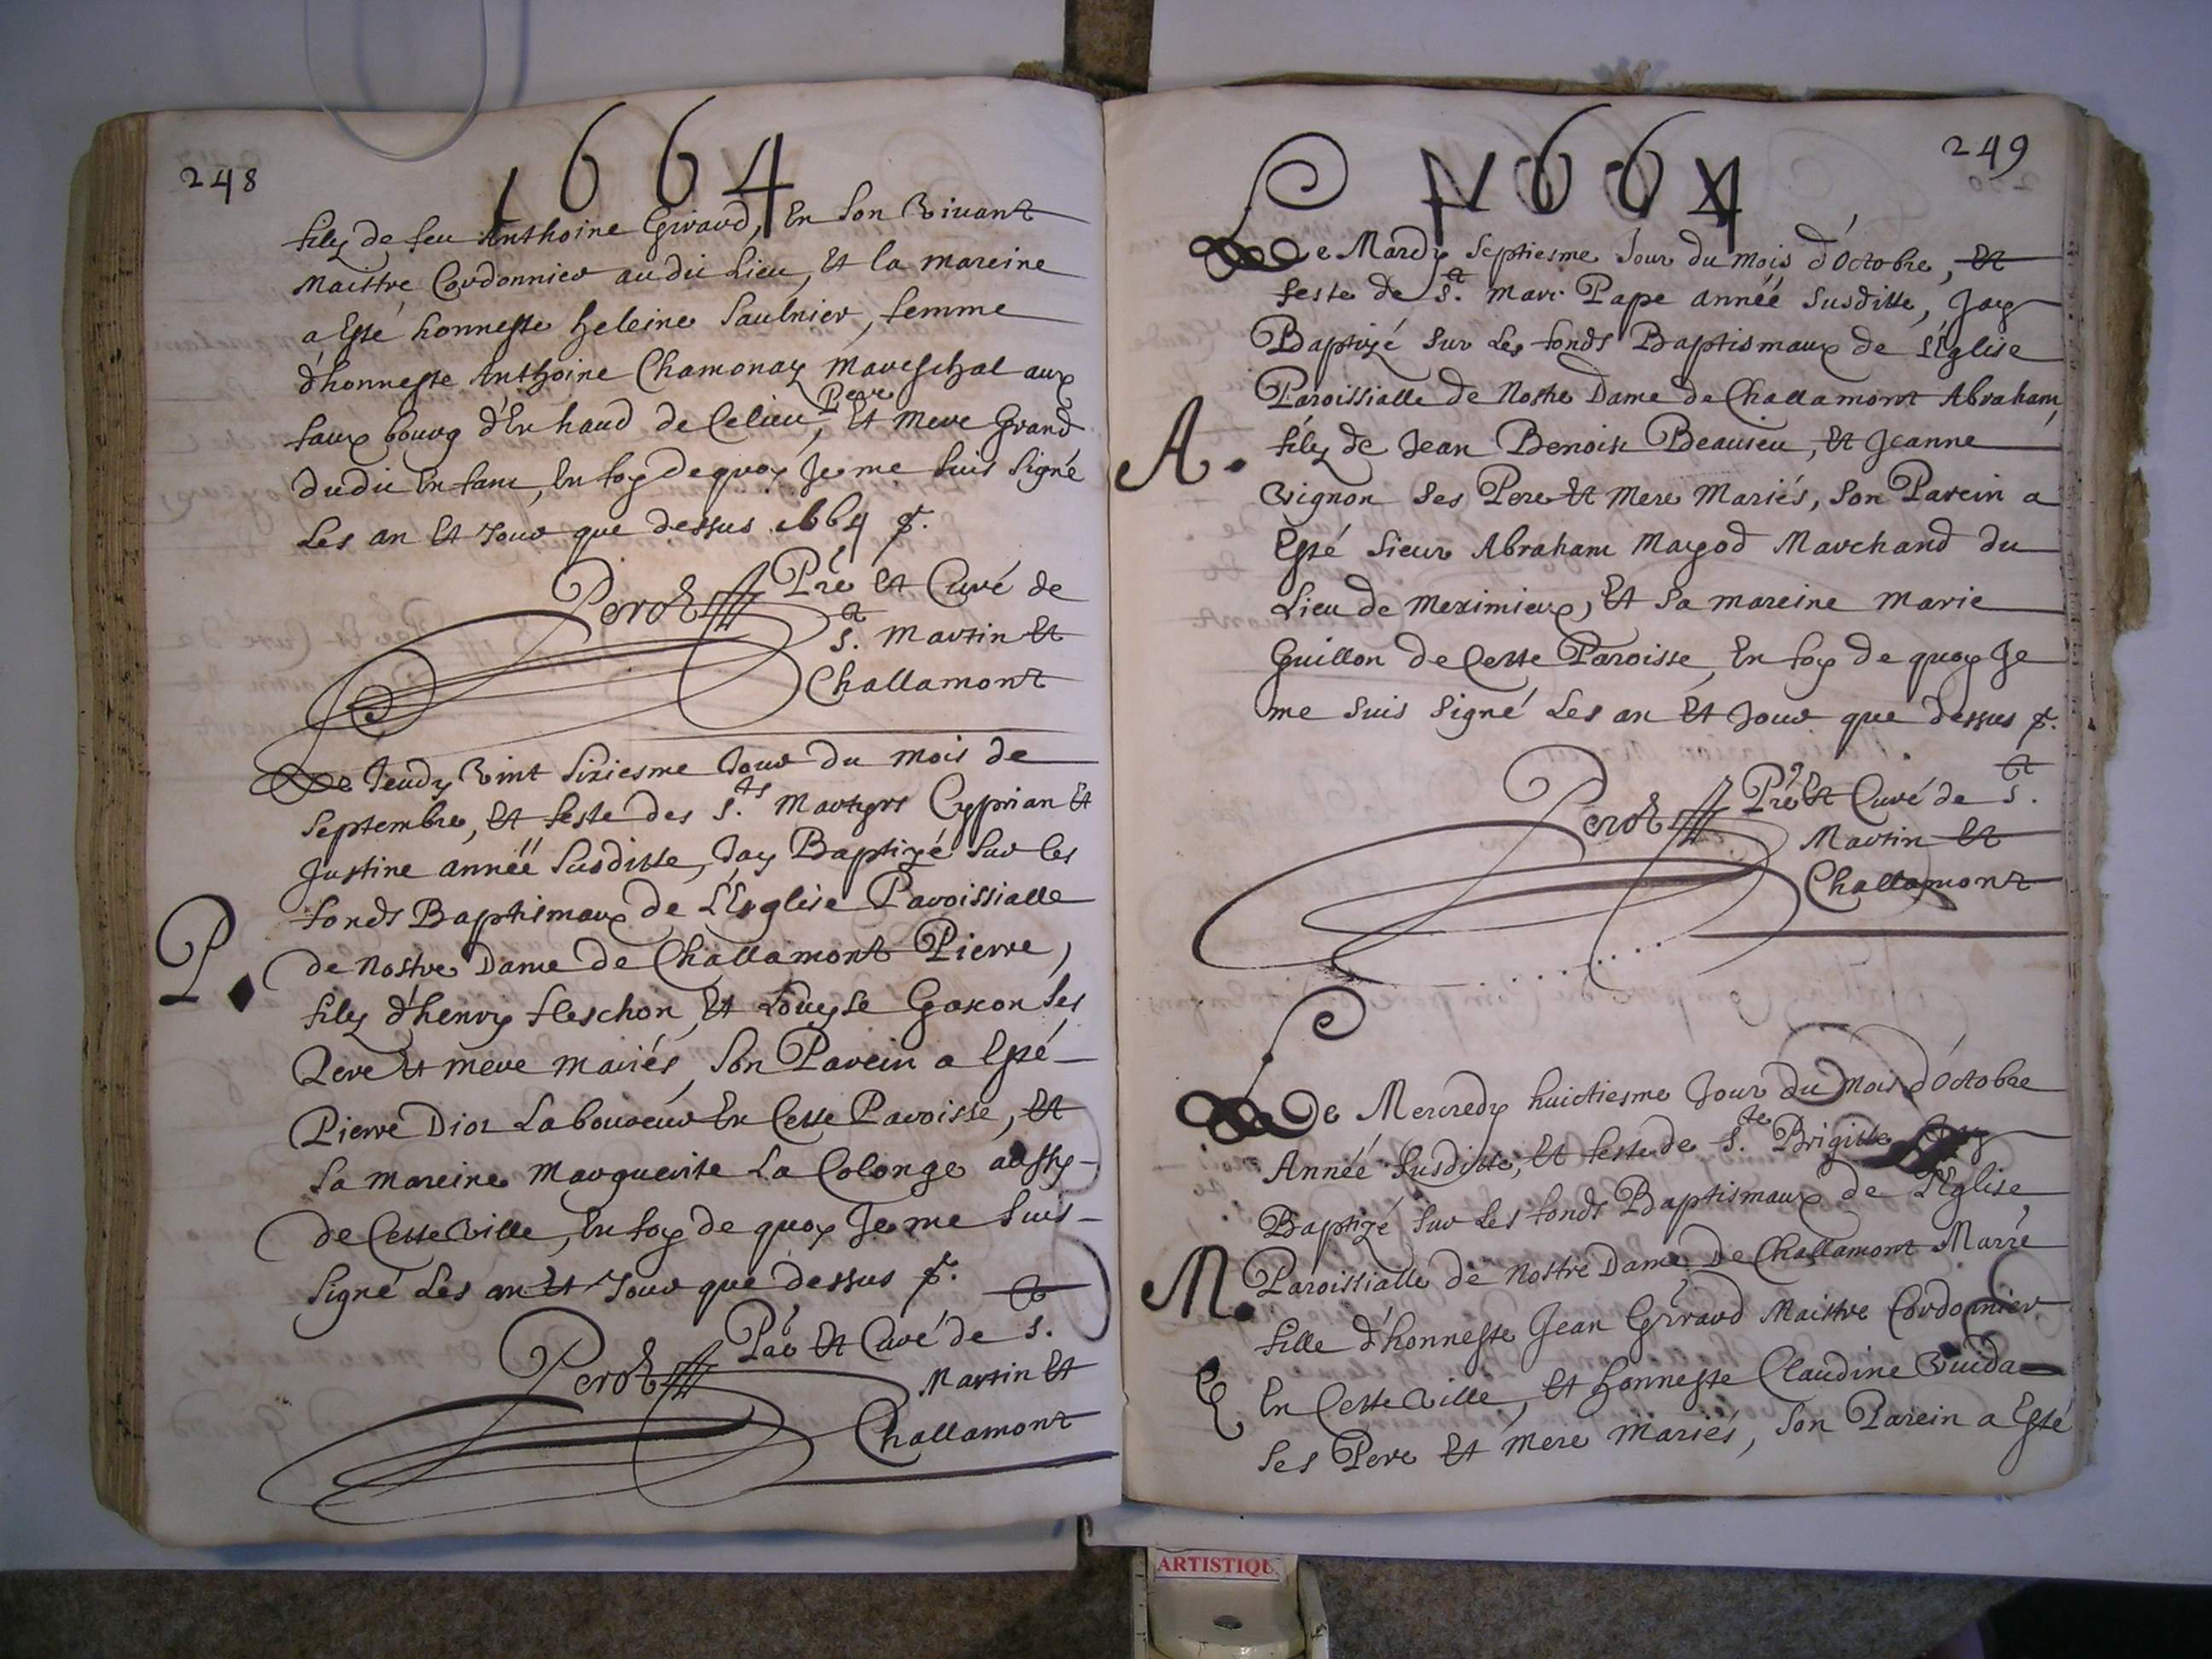 248
1664
filz de feu Anthoine Giraud, En Son Vivant
Maistre Cordonnier audit Lieu, Et la mareine
a Esté honneste heleine Saulnier, femme
d'honneste Anthoine Chamonay mareschal aux
faux bourg d'En haud de Celieu, Pere Et Mere Grand
dudit Enfant, En foy de quoy Je me suis Signé
Les an Et Jour que dessus 1664 &.
Perot Pre Et Curé de
St. Martin Et
Challamont
Le Jeudy Vint Sixiesme Jour du mois de
Septembre, Et feste des Sts. Martyrs Cyprian Et
Justine année Susditte, Jay Baptizé Sur les
fonds Baptismaux de L'Esglise Paroissialle
P. de Nostre Dame de Challamont Pierre,
filz d'henry fleschon, Et Louyse Gaxon Ses
Pere Et mere mariés, Son Parein a Esté
Pierre Dior Laboureur En Cette Paroisse, Et
Sa mareine Marguerite La Colonge aussy
de Cette Ville, En foy de quoy Je me Suis
Signé Les an Et Jour que dessus &.
Perot Pre Et Curé de St.
Martin Et
Challamont
249
1664
Le Mardy Septiesme Jour du Mois d'Octobre, Et
feste de St. Marc Pape année Susditte, Jay
Baptizé Sur Les fonds Baptismaux de L'Église
Paroissialle de Nostre Dame de Challamont Abraham,
A. filz de Jean Benoist Beaulieu, Et Jeanne
Vignon Ses Pere Et Mere Mariés, Son Parein a
Esté Sieur Abraham Magod Marchand du
Lieu de Meximieux, Et Sa mareine Marie
Guillon de Cette Paroisse, En foy de quoy Je
me Suis Signé Les an Et Jour que dessus &.
Perot Pre Et Curé de St.
Martin Et
Challamont
Le Mercredy huictiesme Jour du Mois d'Octobre
Année Susditte, Et feste de Ste. Brigitte Jay
Baptizé Sur Les fonds Baptismaux de L'Eglise
M. Paroissialle de Nostre Dame De Challamont Marie
fille d'honneste Jean Giraud Maistre Cordonnier
En Cette Ville, Et honneste Claudine Vuida
Ses Pere Et Mere Mariés, Son Parein a Esté
ARTISTIQU